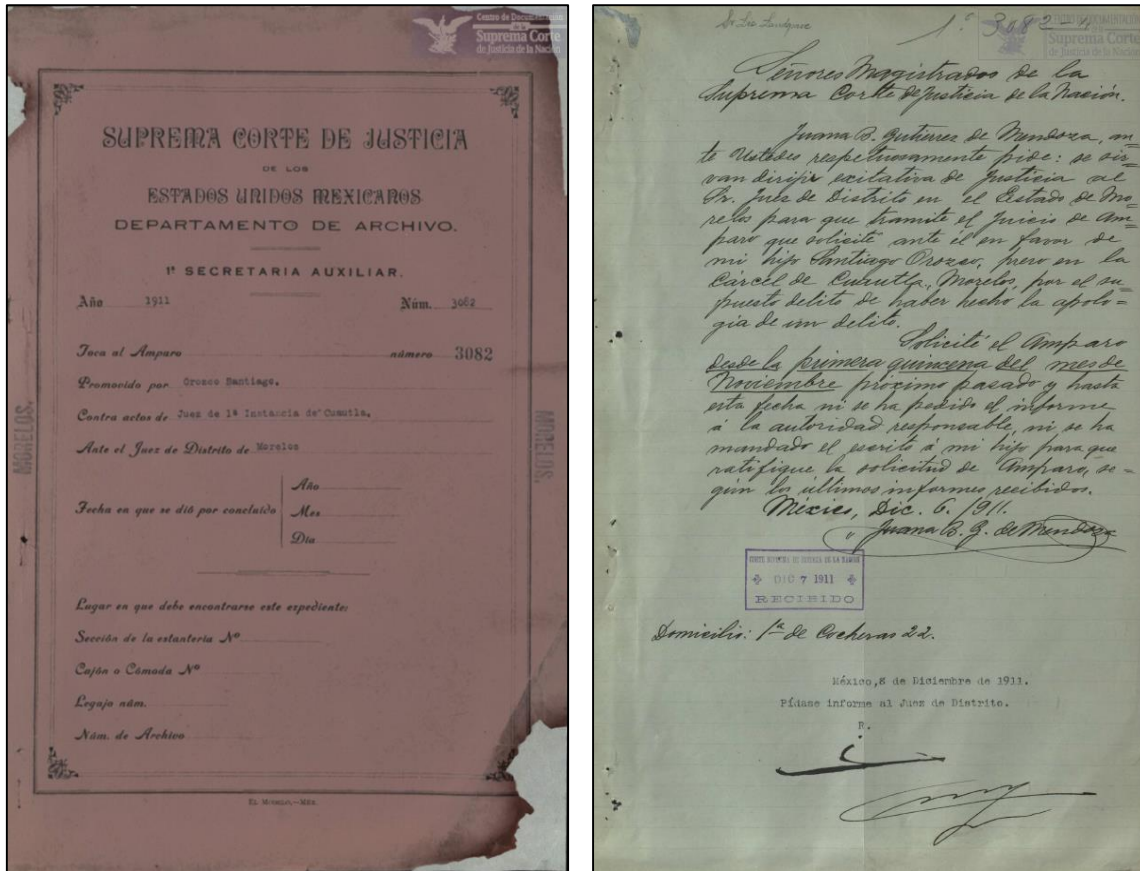 Centro de Documentación
de la
Suprema Corte
de Justicia de la Nación
SUPREMA CORTE DE JUSTICIA
DE LOS
ESTADOS UNIDOS MEXICANOS
DEPARTAMENTO DE ARCHIVO.
1ª SECRETARIA AUXILIAR.
Año 1911 Núm. 3082
Toca al Amparo número 3082
Promovido por Orozco Santiago.
Contra actos de Juez de 1ª Instancia de Cuautla,
Ante el Juez de Distrito de Morelos
MORELOS.
MORELOS.
Fecha en que se dió por concluído
Año
Mes
Día
Lugar en que debe encontrarse este expediente:
Sección de la estantería Nº
Cajón o Cómoda Nº
Legajo núm.
Núm. de Archivo
CENTRO DE DOCUMENTACIÓN
Suprema Corte
de Justicia de la Nación
1º 3082
Señores Magistrados de la
Suprema Corte de Justicia de la Nación.
Juana B. Gutierrez de Mendoza, an
te Ustedes respetuosamente pide: se sir=
van dirijir exitativa de Justicia al
Sr. Juez de Distrito en el Estado de Mo=
relos para que tramite el Juicio de Am=
paro que solicité ante él en favor de
mi hijo Santiago Orozco, preso en la
Cárcel de Cuautla, Morelos, por el su=
puesto delito de haber hecho la apolo=
gia de un delito.
Solicité el Amparo
desde la primera quincena del mes de
Noviembre próximo pasado y hasta
esta fecha ni se ha pedido el informe
á la autoridad responsable, ni se ha
mandado el escrito á mi hijo para que
ratifique la solicitud de Amparo, se=
gún los últimos informes recibidos.
México, Dic. 6. 1911.
Juana B. G. de Mendoza
CORTE SUPREMA DE JUSTICIA DE LA NACION
DIC 7 1911
RECIBIDO
Domicilio: 1ª de Cocheras 22.
México, 8 de Diciembre de 1911.
Pídase informe al Juez de Distrito.
R.